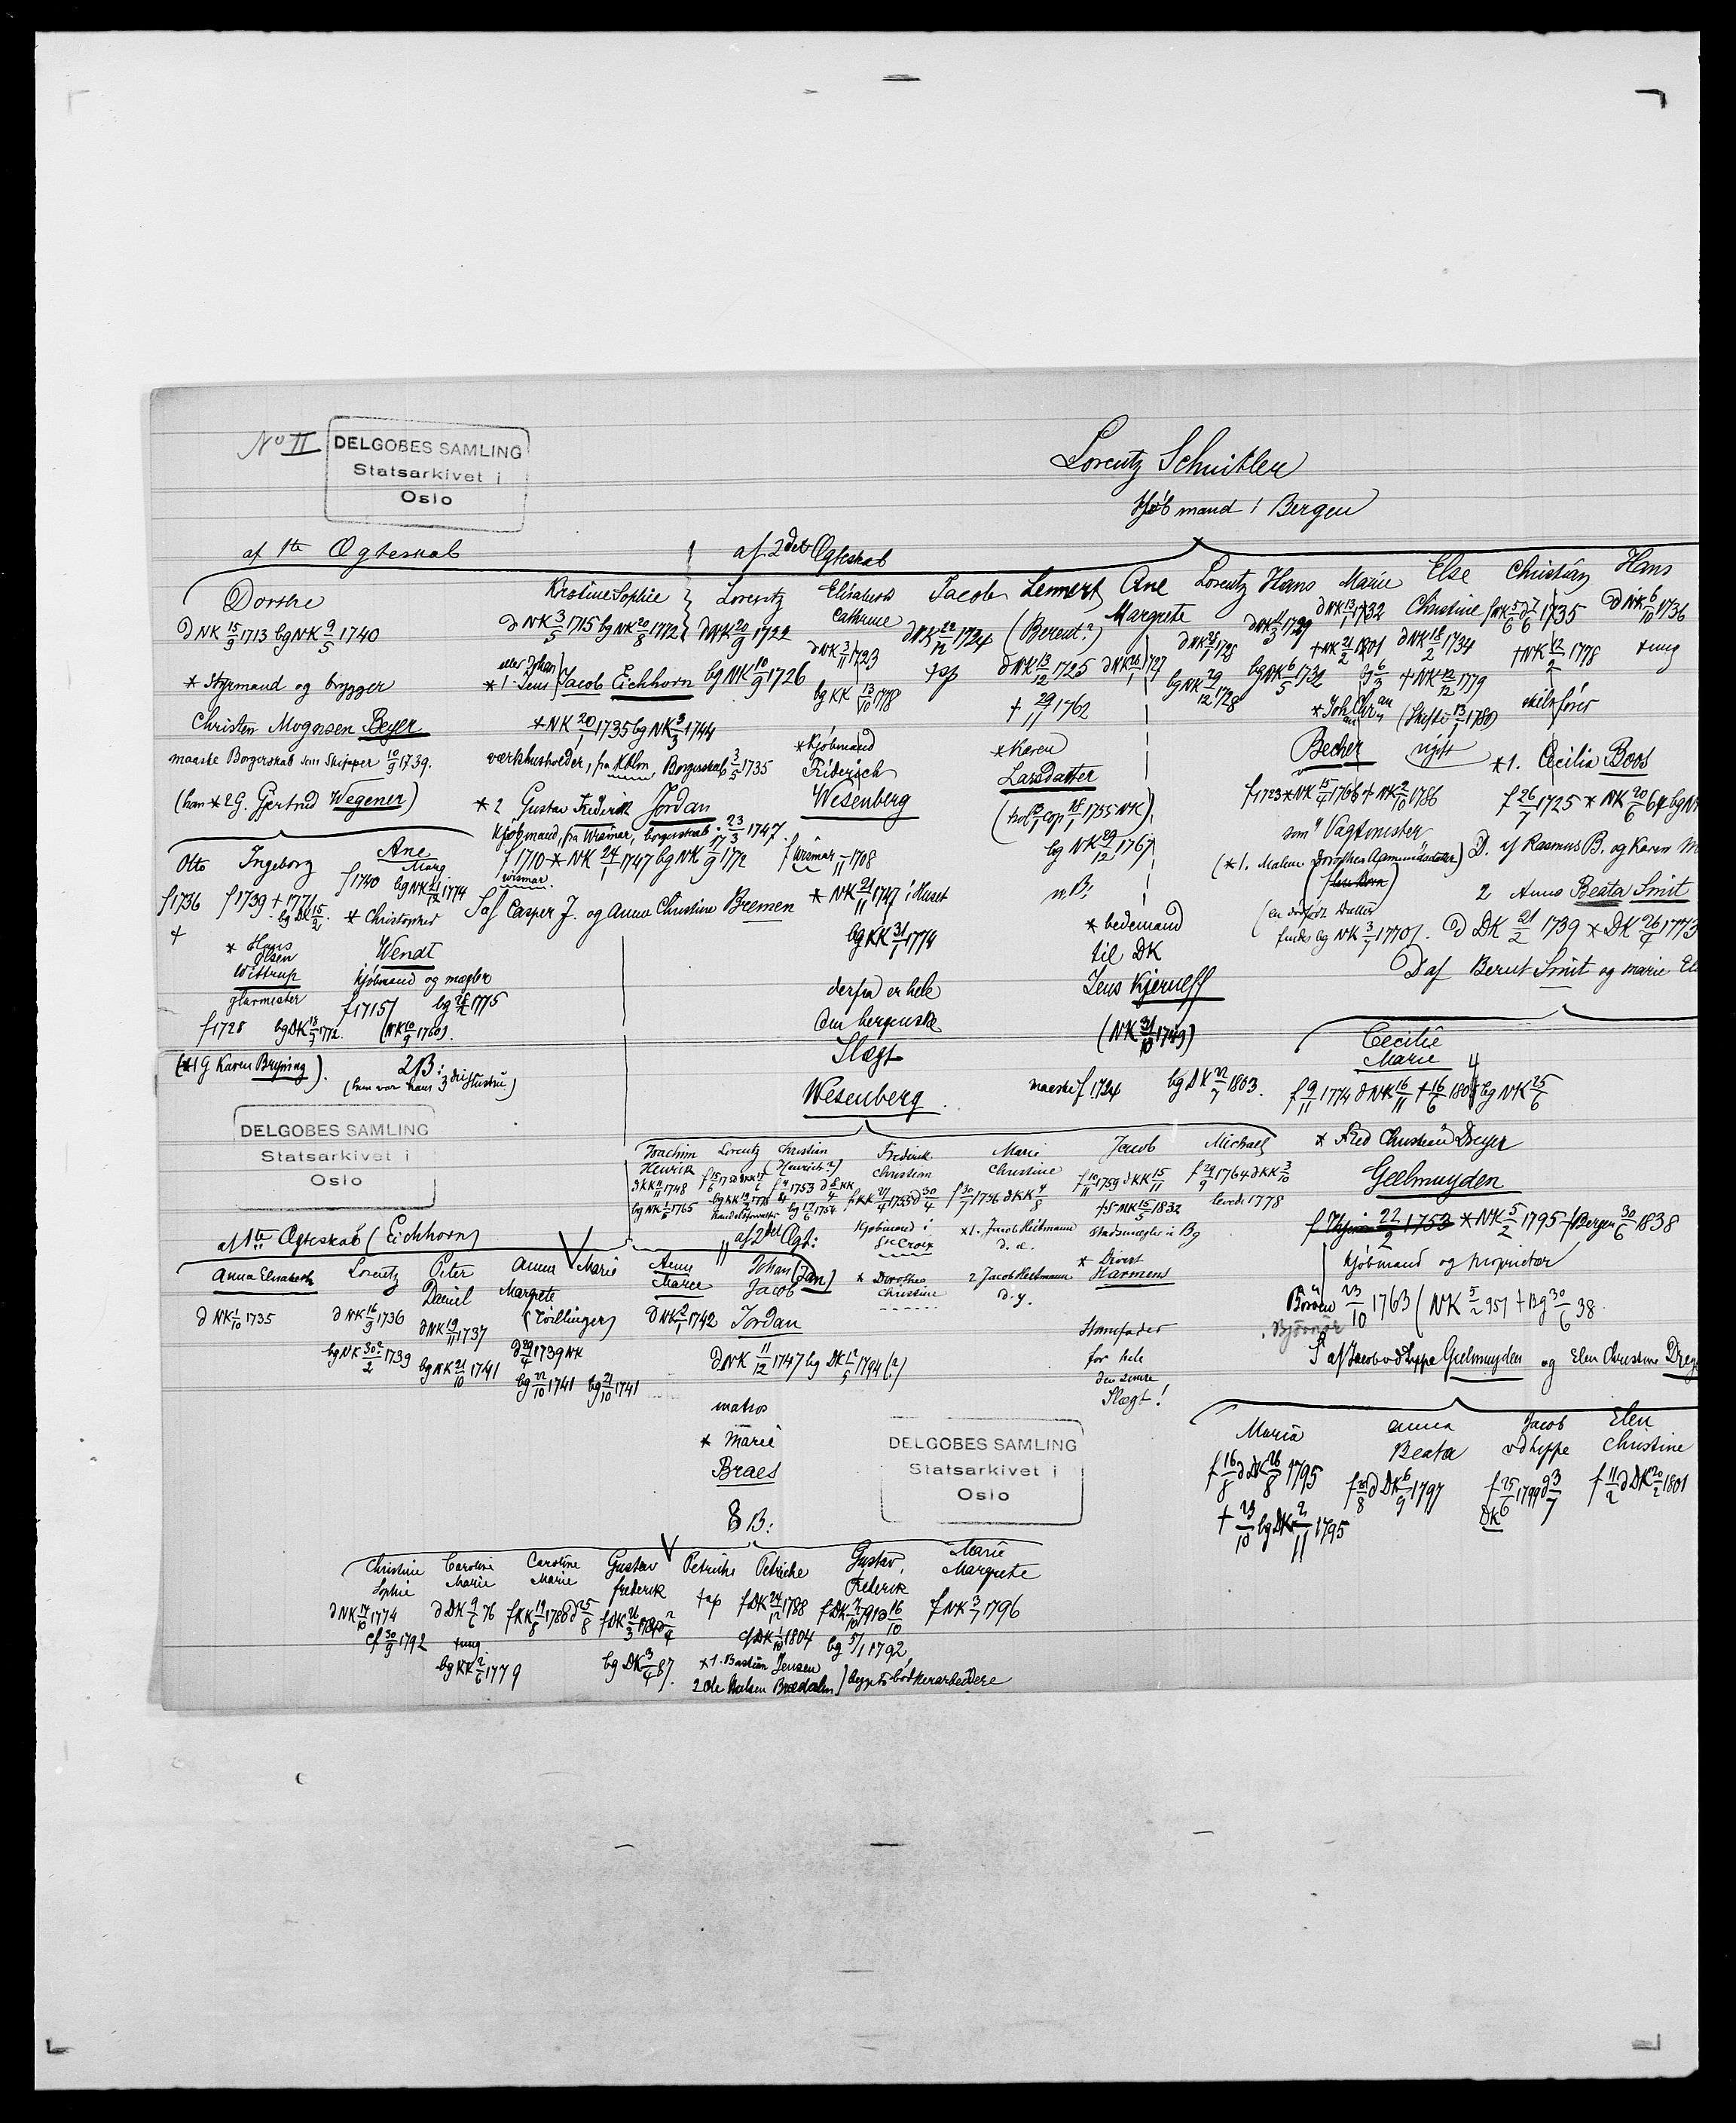 No II
DELGOBES SAMLING
Statsarkivet i
Oslo
Lorentz Schnitler
Kjøbmand i Bergen
af 1te Ægteskab
af 2det Ægteskab
Dorthe
d NK 15/9 1713 bg NK 9/5 1740
* Styrmand og brygger
Christen Mogensen Beyer
maaske Borgerskab som Skipper 10/9 1739.
(han * 2 G. Gjertrud Wegener)
Otto
f 1736
†
Ingeborg
f 1739 † 1771
bg DK 15/2
* Hans
Olsen
Wittrup
glarmester
f 1728 bg DK 18/3 1772.
(* 1 G Karen Bryning).
Ane
Marg
f 1740 bg NK 21/12 1774
* Christopher
Wendt
Kjøbmand og mægler
f 1715
(NK 10/9 1760).
2 B:
(hun var hans 3die Hustru)
Kristine Sophie
d NK 3/5 1715 bg NK 20/8 1772
eller Johan
* 1 Jens Jacob Eichhorn
* NK 20/1 1735 bg NK 3/3 1744
værkhusholder, fra Kblm Borgerskab 3/5 1735
* 2 Gustav Frederik Jordan
Kjøbmand, fra Wismar, borgerskab 23/3 1747.
f 1710 * NK 24/1 1747 bg NK 17/9 1772
wismar.
S af Casper J. og Anna Christine Bremen
Lorentz
d NK 20/9 1722
bg NK 10/9 1726
Elisabeth
Cathrine
d NK 3/11 1723
bg KK 13/10 1778
* Kjøbmand
Friderich
Wesenberg
f Wismar 1708
* NK 21/11 1747 i Huset
bg KK 31/1 1774
derfra er hele
den bergenske
Slægt
Wesenberg.
Jacob
d NK 22/12 1724
† sp
Lennert
(Berent?)
d NK 13/12 1725
† 29/11 1762
* Karen
Larsdatter
bg NK 29/12 1767
n B:
Ane
Margrete
d NK 26/1 1727
* bedemand
til DK
Jens Kjerulff
(NK 31/10 1749)
maaske f. 1724 bg DK 22/7 1803.
Lorentz
d NK 26/1 1728
bg NK 29/12 1728
Hans
d NK 11/3 1729
bg NK 6/5 1732
Marie
d NK 13/1 1732
† NK 21/2 1801
Becher
f 1723 * NK 15/4 1766 † NK 2/10 1786
som Vagtmester
(* 1. Malene Dorothea Aamundsdatter)
Else
Christine
d NK 18/2 1734
† NK 22/12 1779
(Skifte 13/1 1780)
ugift
Christian
f NK 5/6 d 7/6 1735
† NK 12/2 1778
skibsfører
* 1. Cecilia Boos
f 26/7 1725
D. af Rasmus B. og Karen
2 Anna Beata Smit
d DK 21/2 1739 * DK 26/4 1773
D af Berut Smit og Marie
Hans
d NK 6/10 1736
† ung
Cecilie
Marie
f 9/11 1774 d NK 16/11 † 16/6 1804 bg NK 25/6
* Fred Christian Dreyer
Geelmuyden
f Thjem 22/9 1753 * NK 5/2 1795 † Bergen 30/6 1838
Kjøbmand og proprietær
23/10 1763 (NK 5/2 95) † Bg 30/6 38.
S af Jacob v d Lippe Geelmuyden og Elen Christine
Maria
f 16/8 d DK 26/8 1795
† 23/10 bg DK 2/11 1795
Anna
Beata
f 21/8 d DK 6/9 1797
Jacob
v d Lippe
f 25/6 1799 d 3/7
DK
Elen
Christine
f 11/2 d DK 20/2 1801
DELGOBES SAMLING
Statsarkivet i
Oslo
Joachim
Henrik
d KK 11/11 1748
bg NK 1/5 1765
Lorentz
Christian
(Henrich?)
Frederik
Christian
Kjøbmand i
St Croix
* Dorothea
Christine
Marie
Christine
f 30/7 1756 d KK 4/8
* 1. Jacob Heitmann
d. æ.
2 Jacob Heitmann
d. y.
Jacob
f 10/11 1759 d KK 15/11
† NK 15/5 1832
stadsmægler i Bg
* Divert
Harmens
Stamfader
for hele
den senere
Slægt!
Michael
f 29/9 1764 d KK 3/10
levede 1778
af 1te Ægteskab (Eichhorn)
af 2det Ægt:
Anna Elisabeth
d NK 1/10 1735
Lorentz
d NK 16/9 1736
bg NK 30/2 1739
Peter
Daniel
d NK 19/11 1737
bg NK 21/10 1741
Anna
Margrete
(Tvillinger)
d 29/4 1739 NK
bg 22/10 1741
Marie
bg 21/10 1741
Anne
Maree
d NK 2/1 1742
Johan (Jan)
Jacob
Jordan
d NK 11/12 1747 bg DK 12/5 1794 (?)
matros
* Marie
Braes
8 B:
DELGOBES SAMLING
Statsarkivet i
Oslo
Christine
Sophie
d NK 14/10 1774
cf 30/9 1792
Caroline
Marie
d DK 9/6 76
† ung
bg KK 2/6 1779
Caroline
Marie
f KK 19/8 1780 d 25/8
Gustav
frederik
bg DK 3/4 87.
Petriche
† sp
Petriche
f DK 24/12 1788
cf DK 1/10 1804
* 1. Bastian Jensen
2 Ole Nielsen Brædalen) begge to bødkerarbeidere
Gustav,
Frederik
bg 5/1 1792,
Marie
Margrete
f NK 3/7 1796